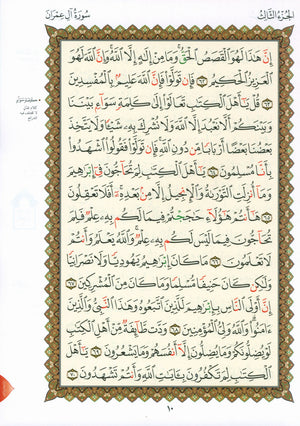 الجزء الثالث
سورة آل عمران
إِنَّ هَٰذَا لَهُوَ الْقَصَصُ الْحَقُّ ۚ وَمَا مِنْ إِلَٰهٍ إِلَّا اللَّهُ ۚ وَإِنَّ اللَّهَ لَهُوَ
الْعَزِيزُ الْحَكِيمُ ٦٢ فَإِن تَوَلَّوْا فَإِنَّ اللَّهَ عَلِيمٌ بِالْمُفْسِدِينَ
٦٣ قُلْ يَا أَهْلَ الْكِتَابِ تَعَالَوْا إِلَىٰ كَلِمَةٍ سَوَاءٍ بَيْنَنَا
وَبَيْنَكُمْ أَلَّا نَعْبُدَ إِلَّا اللَّهَ وَلَا نُشْرِكَ بِهِ شَيْئًا وَلَا يَتَّخِذَ
بَعْضُنَا بَعْضًا أَرْبَابًا مِّن دُونِ اللَّهِ ۚ فَإِن تَوَلَّوْا فَقُولُوا اشْهَدُوا
بِأَنَّا مُسْلِمُونَ ٦٤ يَا أَهْلَ الْكِتَابِ لِمَ تُحَاجُّونَ فِي إِبْرَاهِيمَ
وَمَا أُنزِلَتِ التَّوْرَاةُ وَالْإِنجِيلُ إِلَّا مِن بَعْدِهِ ۚ أَفَلَا تَعْقِلُونَ
٦٥ هَا أَنتُمْ هَٰؤُلَاءِ حَاجَجْتُمْ فِيمَا لَكُم بِهِ عِلْمٌ فَلِمَ
تُحَاجُّونَ فِيمَا لَيْسَ لَكُم بِهِ عِلْمٌ ۚ وَاللَّهُ يَعْلَمُ وَأَنتُمْ
لَا تَعْلَمُونَ ٦٦ مَا كَانَ إِبْرَاهِيمُ يَهُودِيًّا وَلَا نَصْرَانِيًّا
وَلَٰكِن كَانَ حَنِيفًا مُّسْلِمًا وَمَا كَانَ مِنَ الْمُشْرِكِينَ ٦٧
إِنَّ أَوْلَى النَّاسِ بِإِبْرَاهِيمَ لَلَّذِينَ اتَّبَعُوهُ وَهَٰذَا النَّبِيُّ وَالَّذِينَ
آمَنُوا ۗ وَاللَّهُ وَلِيُّ الْمُؤْمِنِينَ ٦٨ وَدَّت طَّائِفَةٌ مِّنْ أَهْلِ الْكِتَابِ
لَوْ يُضِلُّونَكُمْ وَمَا يُضِلُّونَ إِلَّا أَنفُسَهُمْ وَمَا يَشْعُرُونَ ٦٩ يَا أَهْلَ
الْكِتَابِ لِمَ تَكْفُرُونَ بِآيَاتِ اللَّهِ وَأَنتُمْ تَشْهَدُونَ ٧٠